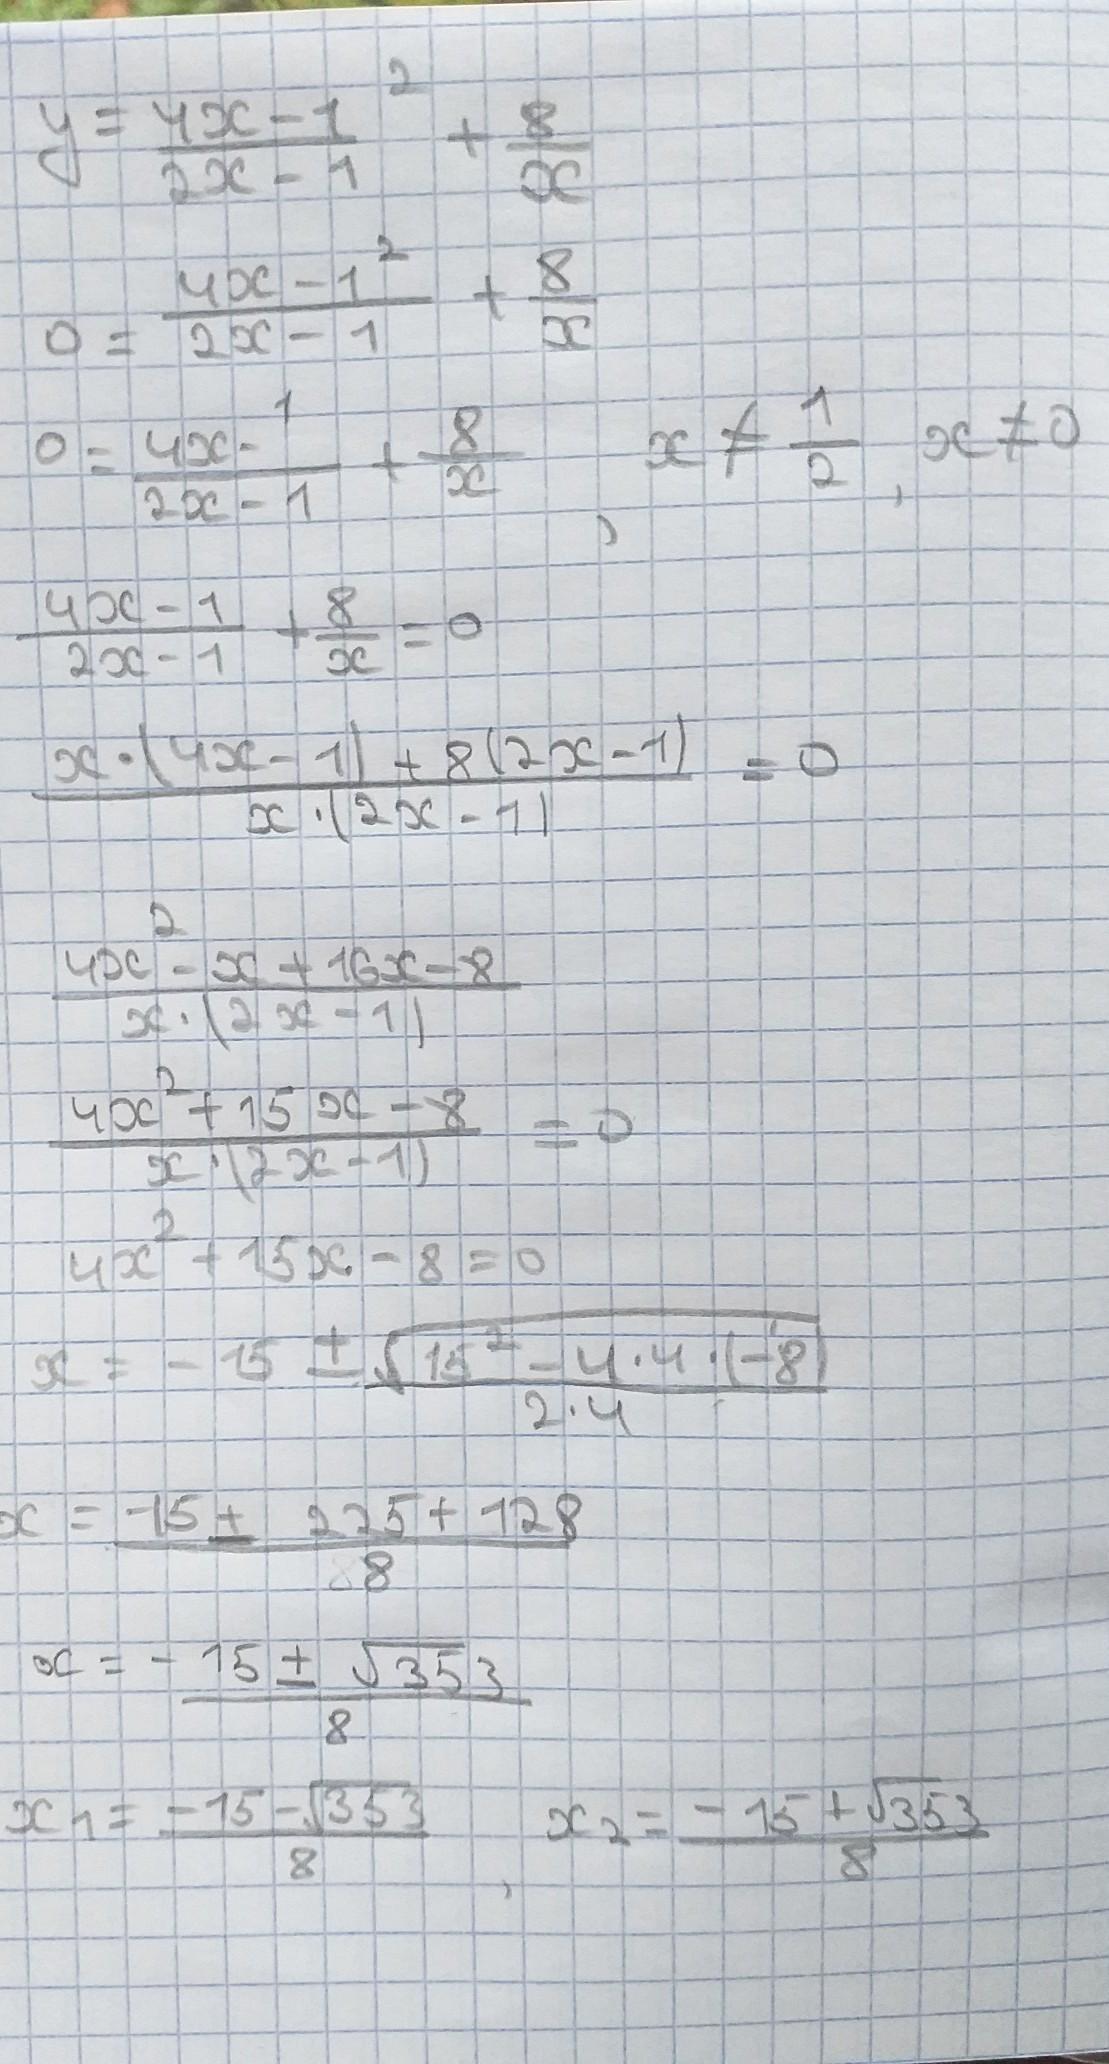 y = \frac{4x-1^2}{2x-1} + \frac{8}{x}
0 = \frac{4x-1^2}{2x-1} + \frac{8}{x}
0 = \frac{4x-1}{2x-1} + \frac{8}{x} , x ≠ \frac{1}{2}, x ≠ 0
\frac{4x-1}{2x-1} + \frac{8}{x} = 0
\frac{x·(4x-1)+8(2x-1)}{x·(2x-1)} = 0
\frac{4x^2-x+16x-8}{x·(2x-1)}
\frac{4x^2+15x-8}{x·(2x-1)} = 0
4x^2+15x-8=0
x = \frac{-15±\sqrt{15^2-4·4·(-8)}}{2·4}
x = \frac{-15± 225+128}{8}
x = -\frac{15±\sqrt{353}}{8}
x_1 = \frac{-15-\sqrt{353}}{8} , x_2 = \frac{-15+\sqrt{353}}{8}